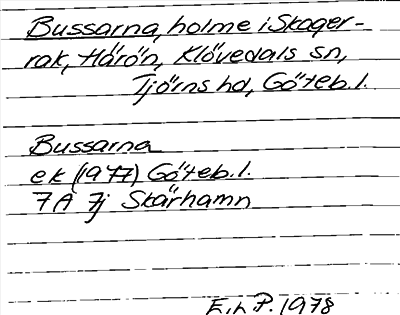 Bussarna, holme i Skager-
rak, Härön, Klövedals sn,
Tjörns hd, Göteb. l.
Bussarna
ek (1977) Göteb. l.
7A 7j Skärhamn
P. 1978